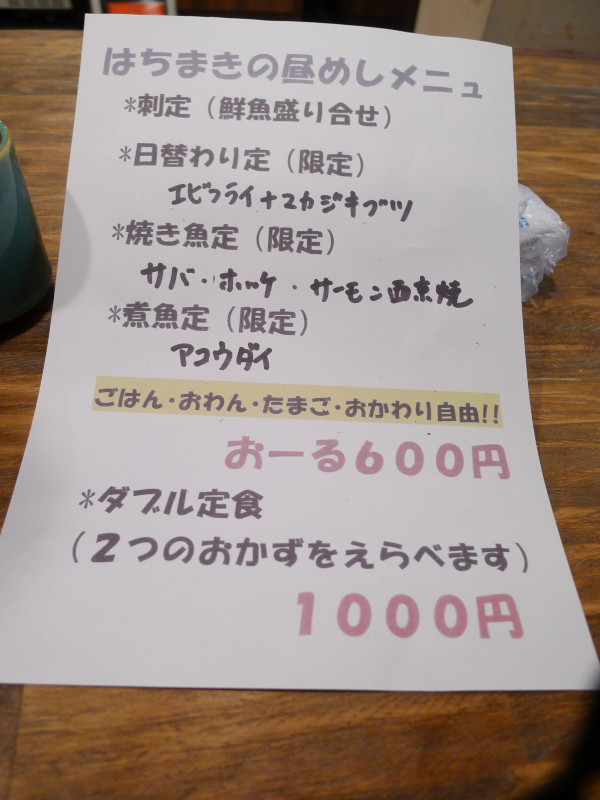 はちまきの昼めしメニュ
*刺定（鮮魚盛り合せ）
*日替わり定（限定）
エビフライ+マカジキブツ
*焼き魚定（限定）
サバ・ホッケ・サーモン西京焼
*煮魚定（限定）
アコウダイ
ごはん・おわん・たまご・おかわり自由!!
おーる６００円
*ダブル定食
（２つのおかずをえらべます）
１０００円